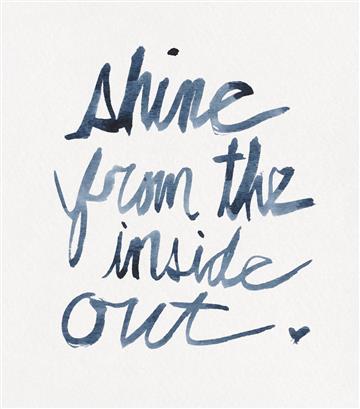 shine
from the
inside
out.